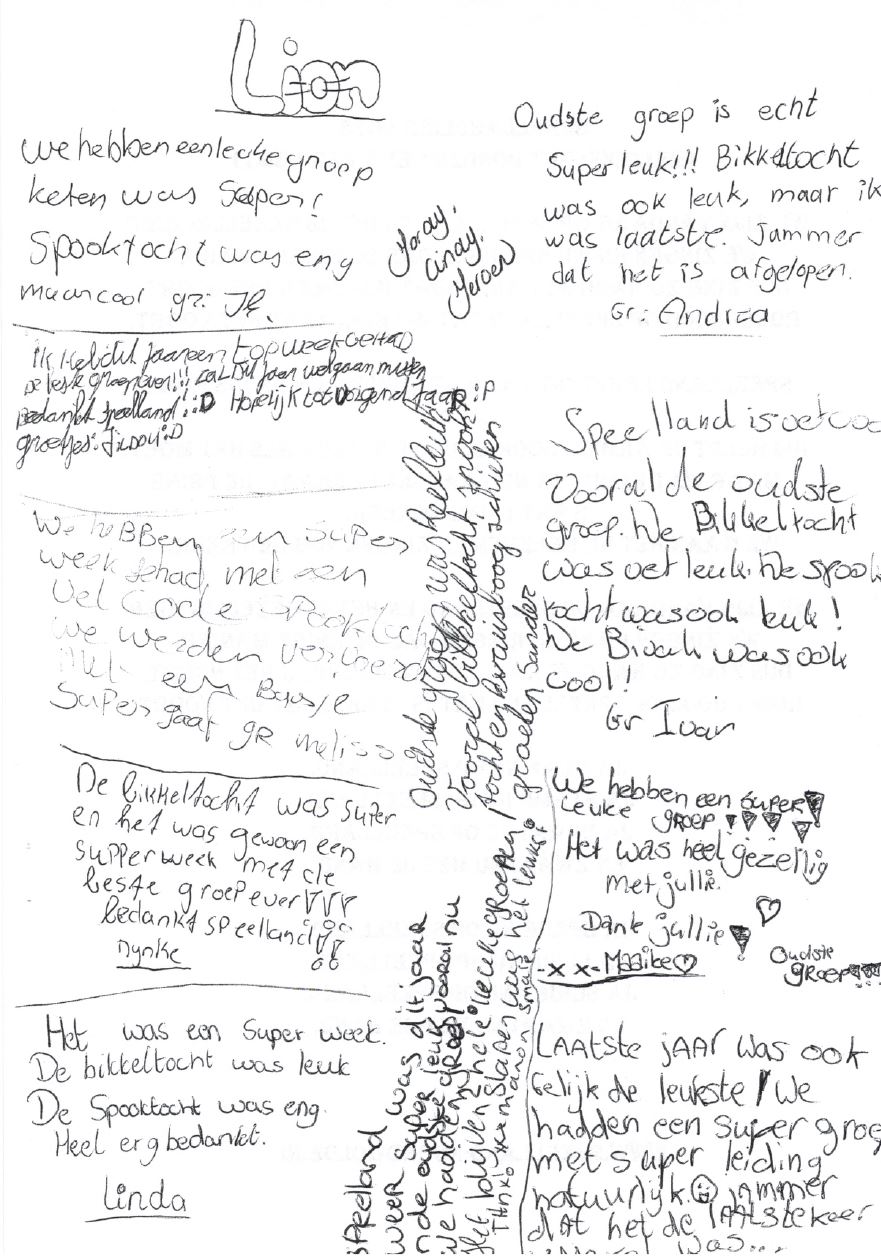 Lion
We hebben een leuke groep
keten was super!
Spooktocht was eng
maar cool gr:
Yoray,
Cindy,
Jeroen
Oudste groep is echt
Super leuk!!! Bikkeltocht
was ook leuk, maar ik
was laatste. Jammer
dat het is afgelopen.
Gr: Andrea
Ik heb dit jaar een top week gehad
De beste groep ever!!! zal dit jaar wel gaan missen
Bedankt speelland :D Hopelijk tot volgend jaar :P
groetjes:
We hebben een super
week gehad, met een
vet coole spooktocht
we werden
een Busje
Super gaaf gr Meliss
De bikkeltocht was super
en het was gewoon een
supper week met de
beste groep ever!!!
bedankt speelland!!
Nynke
Het was een super week.
De bikkeltocht was leuk
De Spooktocht was eng.
Heel erg bedankt.
Linda
Oudste groep was heel leuk
Vooral bikkeltocht, spook
tocht en kruisboog schieten
groeten Sander
Speelland
weer super was dit jaar
nde oudste super leuk vooral nu
we hadden groep
Het blijven hele leuke groepen!
slapen was het leukst
Manon
Speelland is vet coo
Vooral de oudste
groep. De Bikkeltocht
was vet leuk. De spook
tocht was ook leuk!
De Bivak was ook
cool!
Gr Ivar
We hebben een super!
Leuke groep !!!!
Het was heel gezellig
met jullie.
Dank jullie!
-xx- Maaike
Oudste
groep!!!
LAAtste jAAr was ook
Gelijk de leukste! We
hadden een super groe
met super leiding
natuurlijk. jammer
dAt het de lAAtste keer
was...